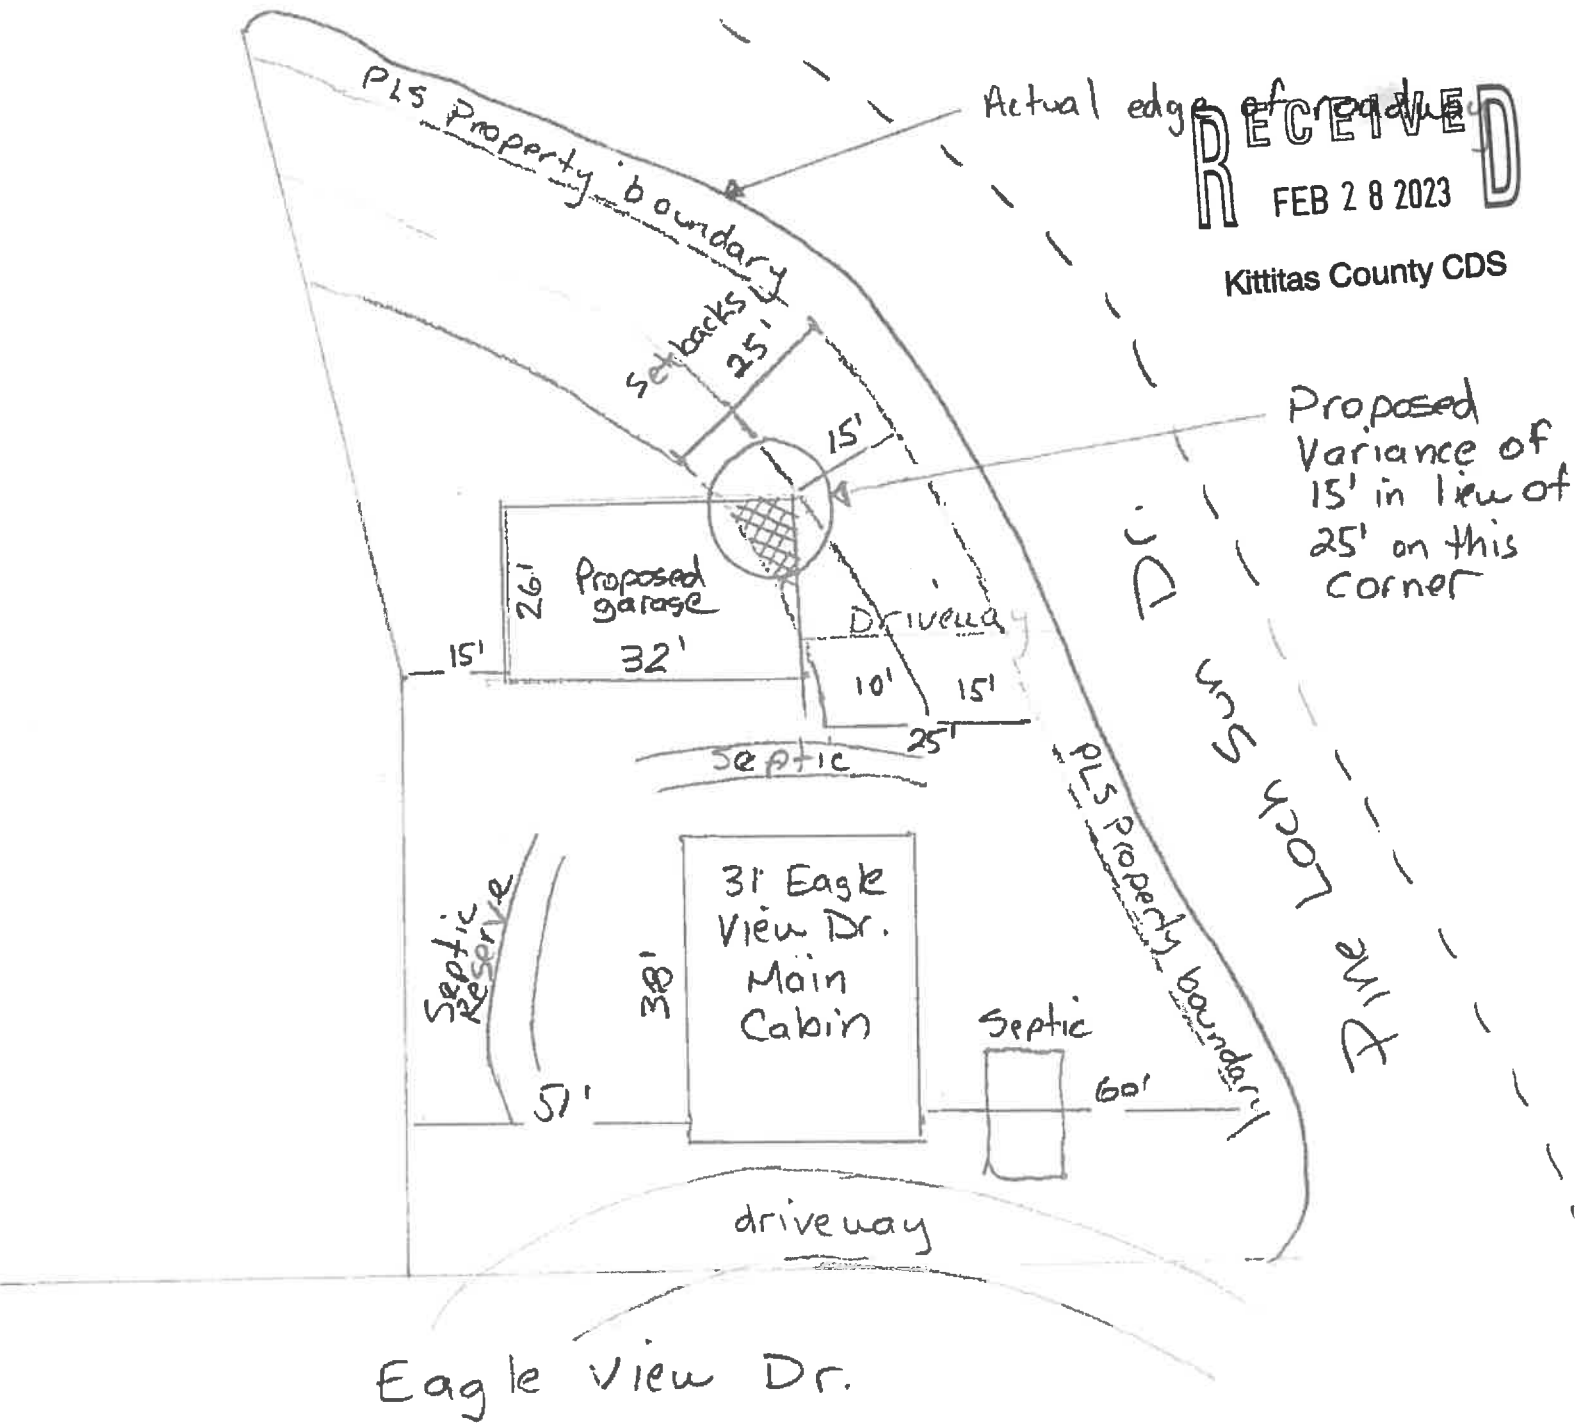 Actual edge of roadway
RECEIVED
FEB 28 2023
Kittitas County CDS
PLS Property boundary
setbacks
25'
15'
Proposed
Variance of
15' in lieu of
25' on this
corner
26'
Proposed
garage
32'
15'
Driveway
10'
15'
25'
Septic
PLS property boundary
Aine Loch Sun Dr.
Septic
Reserve
38'
31 Eagle
View Dr.
Main
Cabin
Septic
51'
60'
driveway
Eagle View Dr.